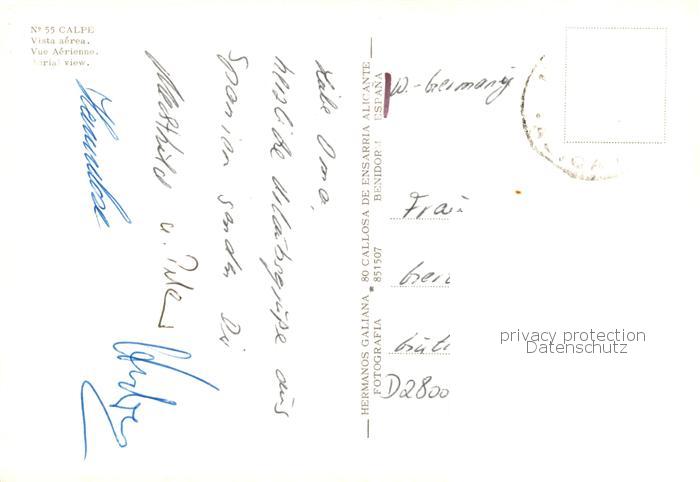 Nº 55 CALPE
Vista aérea.
Vue Aérienne.
Aerial view.
Liebe Oma,
herzliche Urlaubsgrüße aus
Spanien senden Dir
Mechthild u. Peter
HERMANOS GALIANA 80 CALLOSA DE ENSARRIA ALICANTE
FOTOGRAFIA 851507 BENIDORM ESPAÑA
W.-Germany
Frau
D2800
privacy protection
Datenschutz